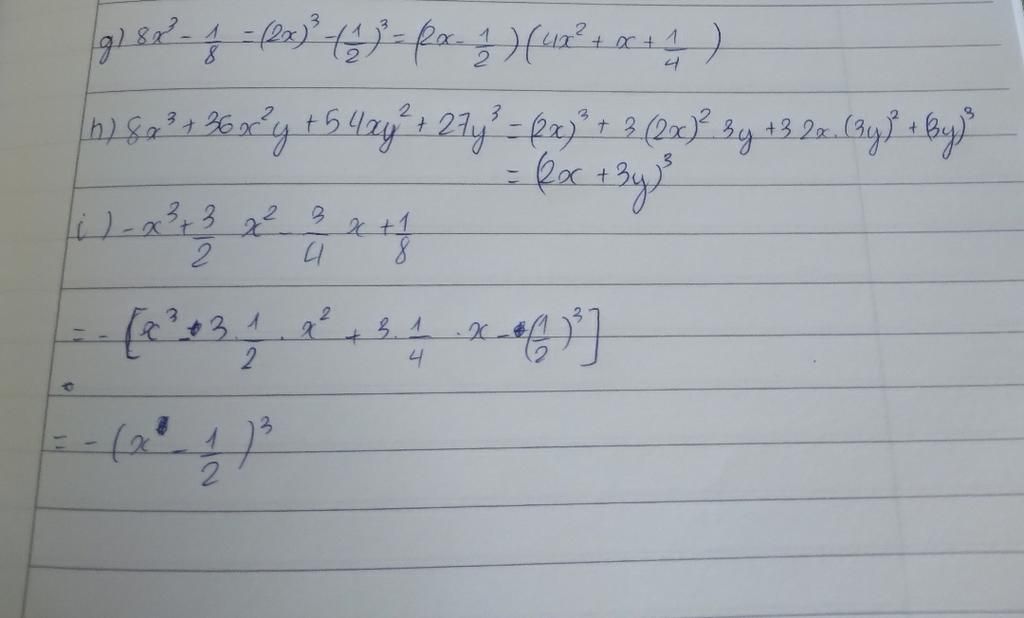 g) 8x³ - 1/8 = (2x)³ - (1/2)³ = (2x - 1/2) (4x² + x + 1/4)
h) 8x³ + 36x²y + 54xy² + 27y³ = (2x)³ + 3.(2x)².3y + 3.2x.(3y)² + (3y)³
= (2x + 3y)³
i) -x³ + 3/2 x² - 3/4 x + 1/8
= - [x³ - 3.1/2 . x² + 3.1/4 . x - (1/2)³]
= - (x - 1/2)³